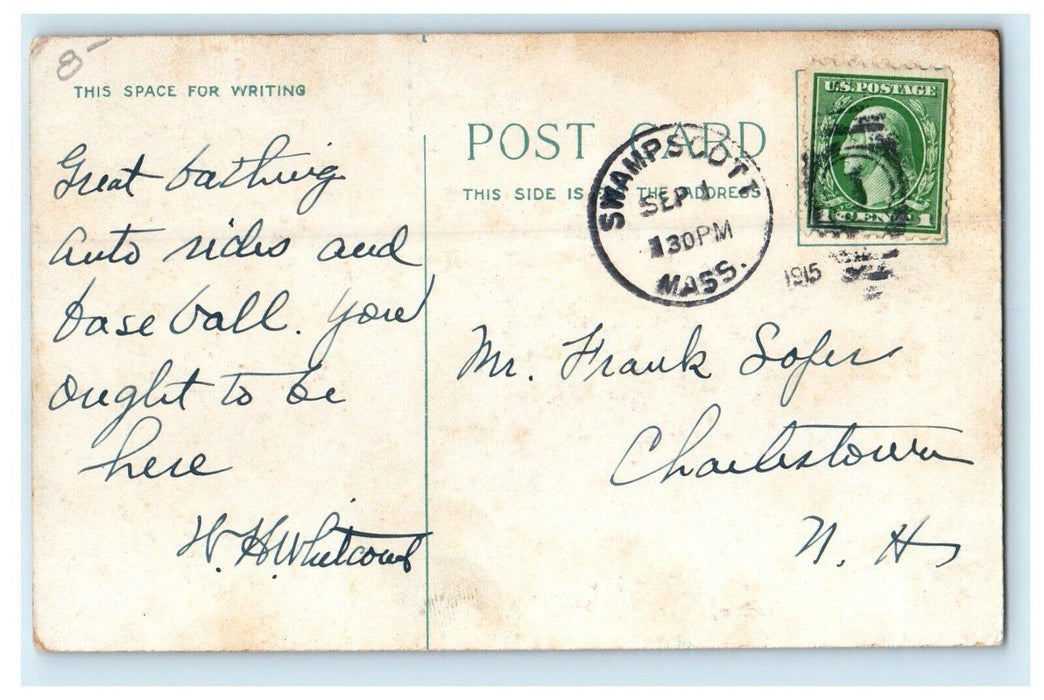 8-
THIS SPACE FOR WRITING
Great bathing
auto rides and
base ball. You
ought to be
here
W. H. Whitcomb
POST CARD
THIS SIDE IS THE ADDRESS
SWAMPSCOTT
SEP 1
30PM
MASS.
1915
U.S. POSTAGE
1 CENT 1
Mr. Frank Sofer
Charlestown
N. H